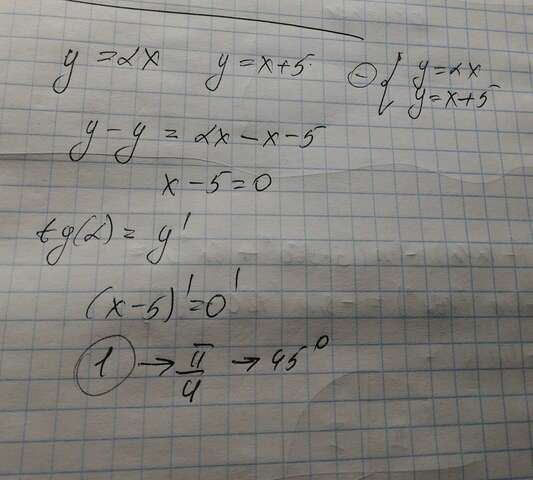 y = 2x y = x+5 ⊖ { y = 2x
y = x+5
y - y = 2x - x - 5
x - 5 = 0
tg(α) = y'
(x - 5)' = 0'
1 → π/4 → 45°